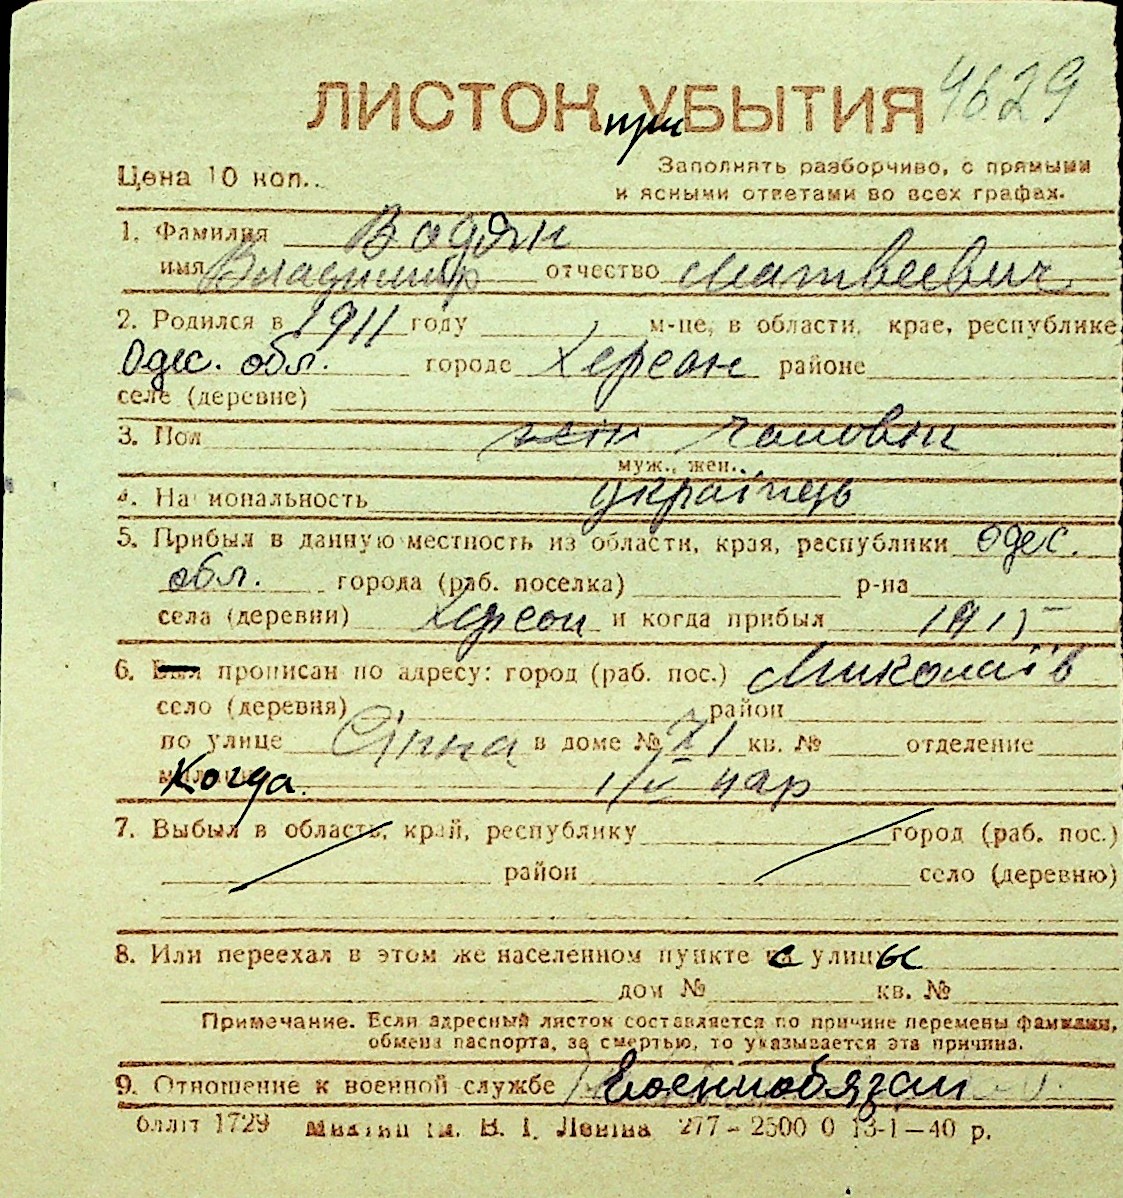 ЛИСТОК при УБЫТИЯ 4629
Цена 10 коп..
Заполнять разборчиво, с прямыми
и ясными ответами во всех графах.
1. Фамилия Водян
имя Владимир отчество Матвеевич
2. Родился в 1911 году м-це, в области, крае, республике
Одес. обл. городе Херсон районе
селе (деревне)
3. Пол жен чоловік
муж., жен.
4. Национальность українець
5. Прибыл в данную местность из области, края, республики Одес.
обл. города (раб. поселка) р-на
села (деревни) Херсон и когда прибыл 1915
6. Был прописан по адресу: город (раб. пос.) Миколаїв
село (деревня) район
по улице Сінна в доме № 71 кв. № отделение
Когда. 1/IV
7. Выбыл в область, край, республику город (раб. пос.)
район село (деревню)
8. Или переехал в этом же населенном пункте с улицы
дом № кв. №
Примечание. Если адресный листок составляется по причине перемены фамилии,
обмена паспорта, за смертью, то указывается эта причина.
9. Отношение к военной службе Военнообязан
блліт 1729 ім. В. І. Леніна 277 – 2500 0 13-1—40 р.